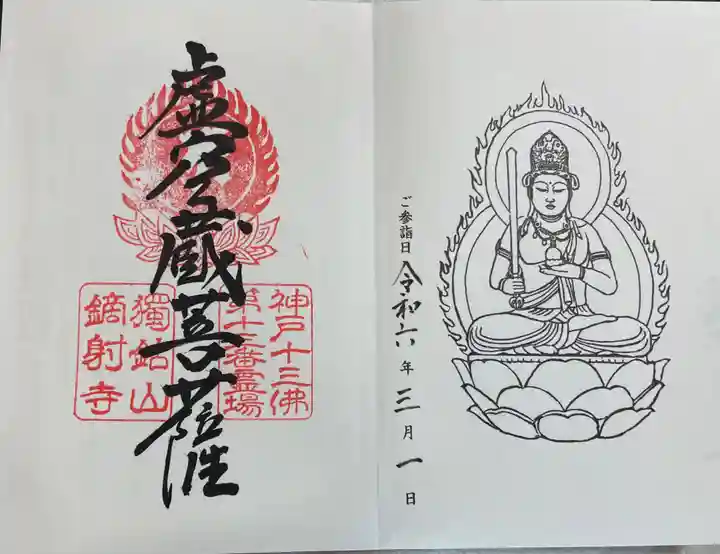 ご参詣日 令和六年三月一日
神戸十三佛
第十三番霊場
虚空蔵菩薩
獨鈷山
鏑射寺